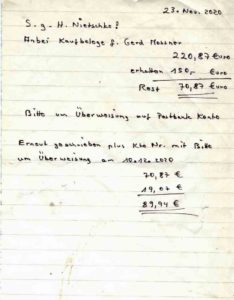 23. Nov. 2020
S. g. H. Nietschke!
Anbei Kaufbelege f. Gerd Messner
220,87 €uro
erhalten 150,- €uro
Rest 70,87 €uro
Bitte um Überweisung auf Postbank Konto
Erneut geschrieben plus Kto Nr. mit Bitte
um Überweisung am 10.12.2020
70,87 €
19,07 €
89,94 €